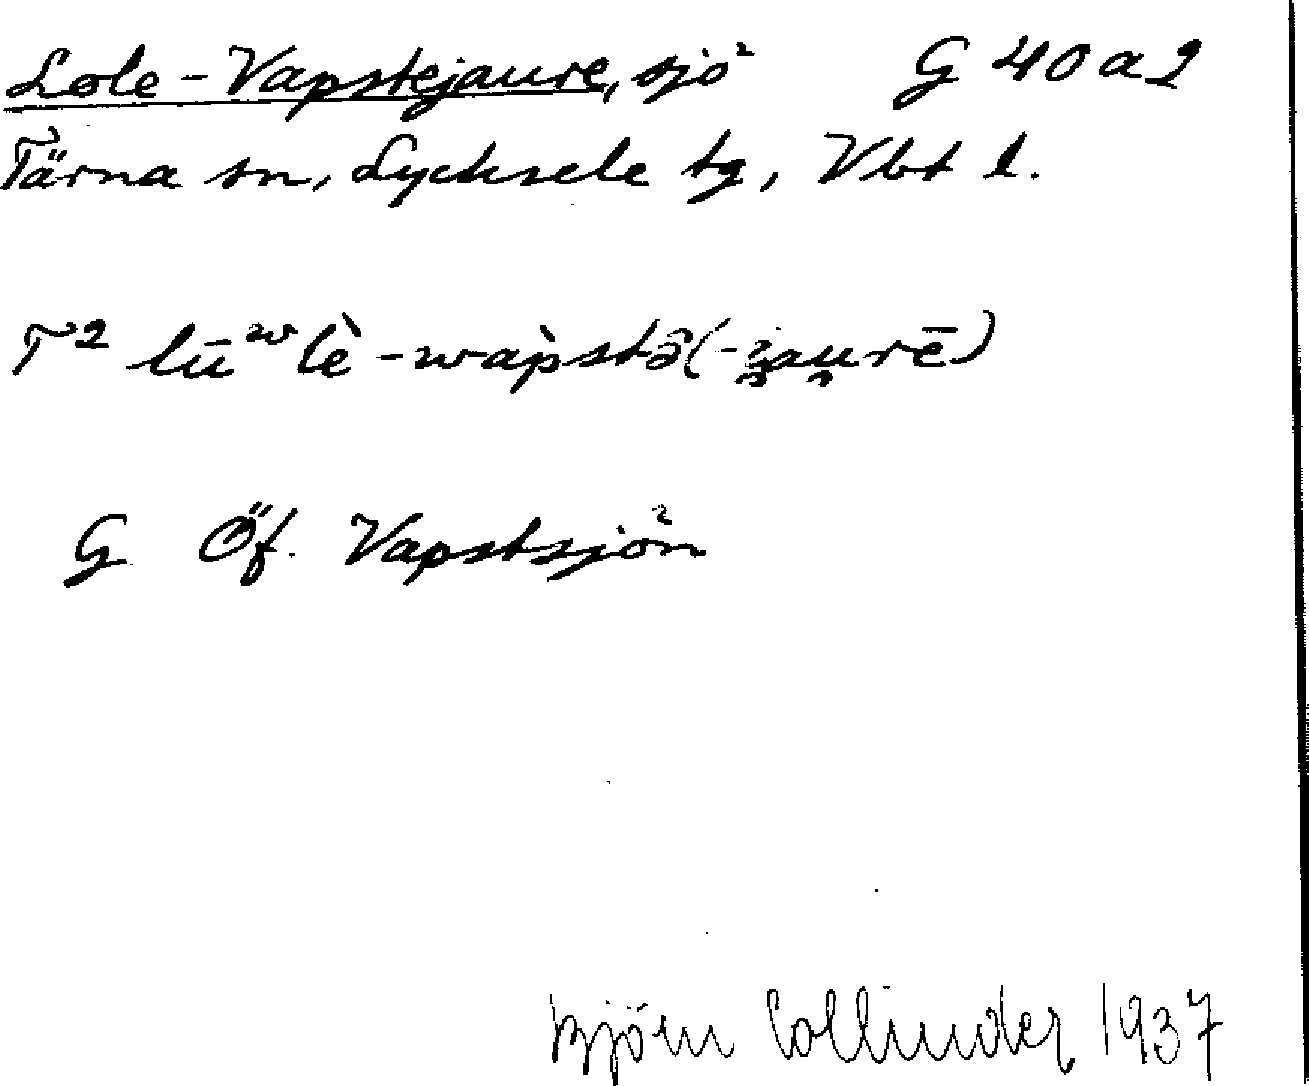 Lole-Vapstejaure, sjö G 40 a 2
Tärna sn, Lycksele tg, Vbt l.
T² lūʷlè-wàpstə̑(-i̯au̯rē)
G Öf. Vapstsjön
Björn Collinder 1937